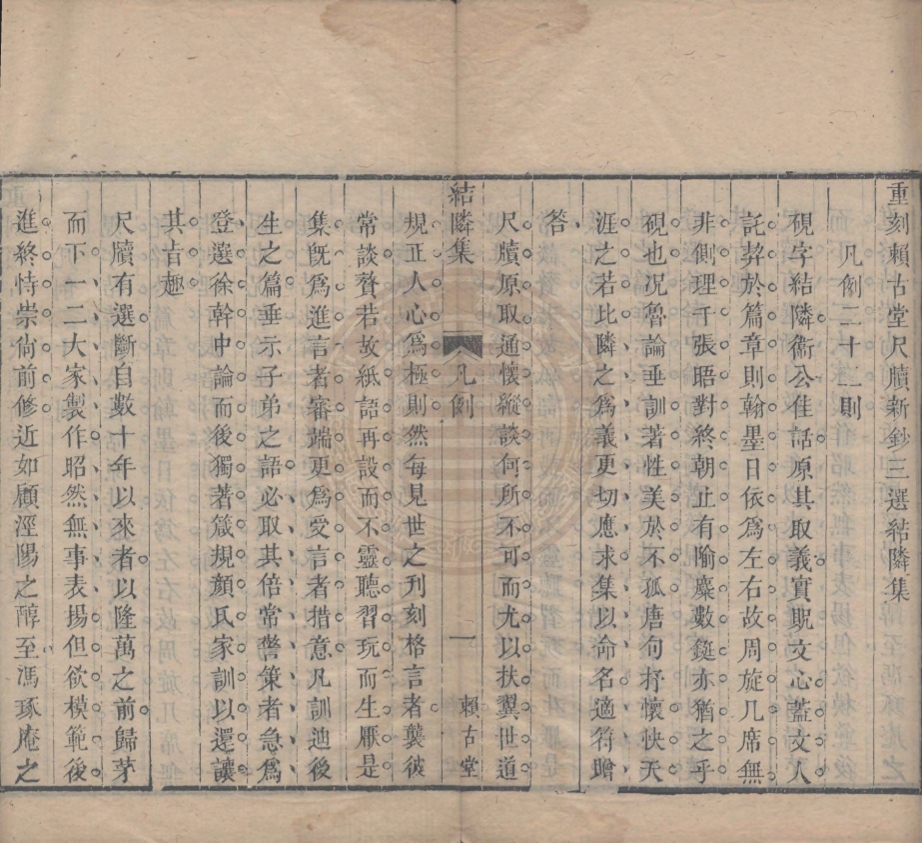 重刻賴古堂尺牘新鈔三選結隣集
凡例二十二則
硯字結隣衞公佳話原其取義實貺文心蓋文人
託契於篇章則翰墨日依爲左右故周旋几席無
非側理千張晤對終朝止有隃麋數鋌亦猶之乎
硯也况魯論垂訓著性美於不孤唐句抒懷快天
涯之若比隣之爲義更切應求集以命名適符贈
答
尺牘原取通懷縱談何所不可而尤以扶翼世道
結隣集 凡例 一 賴古堂
規正人心爲極則然每見世之刋刻格言者襲彼
常談贅若故紙語再設而不靈聽習玩而生厭是
集旣爲進言者審端更爲愛言者措意凡訓迪後
生之篇垂示子弟之語必取其倍常警策者急爲
登選徐幹中論而後獨著箴規顏氏家訓以還讓
其旨趣
尺牘有選斷自數十年以來者以隆萬之前歸茅
而下一二大家製作昭然無事表揚但欲模範後
進終恃崇尙前修近如顧涇陽之醇至馮琢庵之